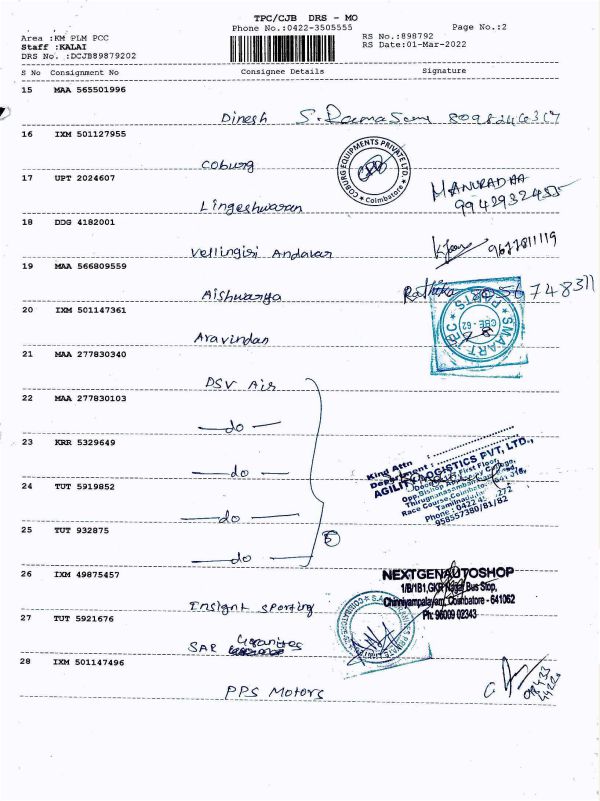 TPC/CJB DRS - MO
Phone No.:0422-3505555
Page No.:2
Area :KM PLM PCC
RS No.:898792
Staff :KALAI
RS Date:01-Mar-2022
DRS No. :DCJB89879202
S No Consignment No Consignee Details Signature
15 MAA 565501996
Dinesh S. Ramasamy
16 IXM 501127955
Coburg
COBURG EQUIPMENTS PRIVATE LTD.
* Coimbatore *
17 UPT 2024607
Lingeshwaran
MANURADHA
9942932455
18 DDG 4182001
Vellingiri Andavar 9677811119
19 MAA 566809559
Aishwarya Rathika
20 IXM 501147361
Aravindan
SMAART TEC * PARTS *
CBE - 62
21 MAA 277830340
DSV Air
22 MAA 277830103
— do —
23 KRR 5329649
— do —
Kind Attn :
Department :
AGILITY LOGISTICS PVT, LTD.,
First Floor,
Opp.Bishop Appasamy College,
Race Course, Coimbatore
Tamilnadu
Phone : 0422
958557380/81/82
24 TUT 5919852
— do —
25 TUT 932875
— do —
5
26 IXM 49875457
Insight Sporting
NEXTGENAUTOSHOP
1/B/1B1,GKR Nagar Bus Stop,
Chinniyampalayam, Coimbatore - 641062
Ph: 96009 02343
27 TUT 5921676
SAR Granites
28 IXM 501147496
PPS Motors